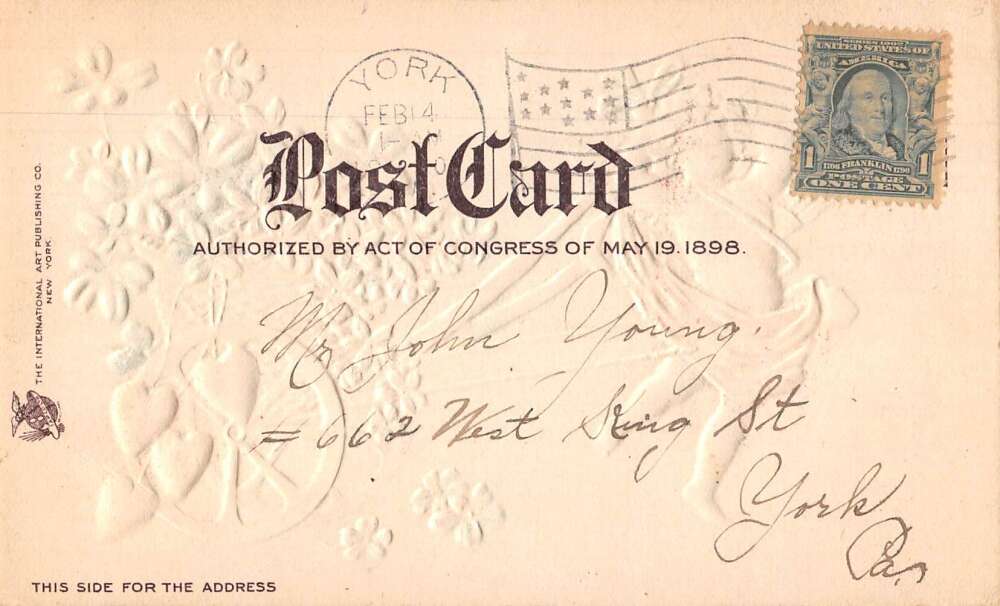 YORK
FEB 14
1
SERIES 1902
UNITED STATES OF
AMERICA
1 1706 FRANKLIN 1790 1
POSTAGE
ONE CENT
Post Card
AUTHORIZED BY ACT OF CONGRESS OF MAY 19. 1898.
THE INTERNATIONAL ART PUBLISHING CO.
NEW YORK
Mr John Young.
=662 West King St
York
Pa,
THIS SIDE FOR THE ADDRESS